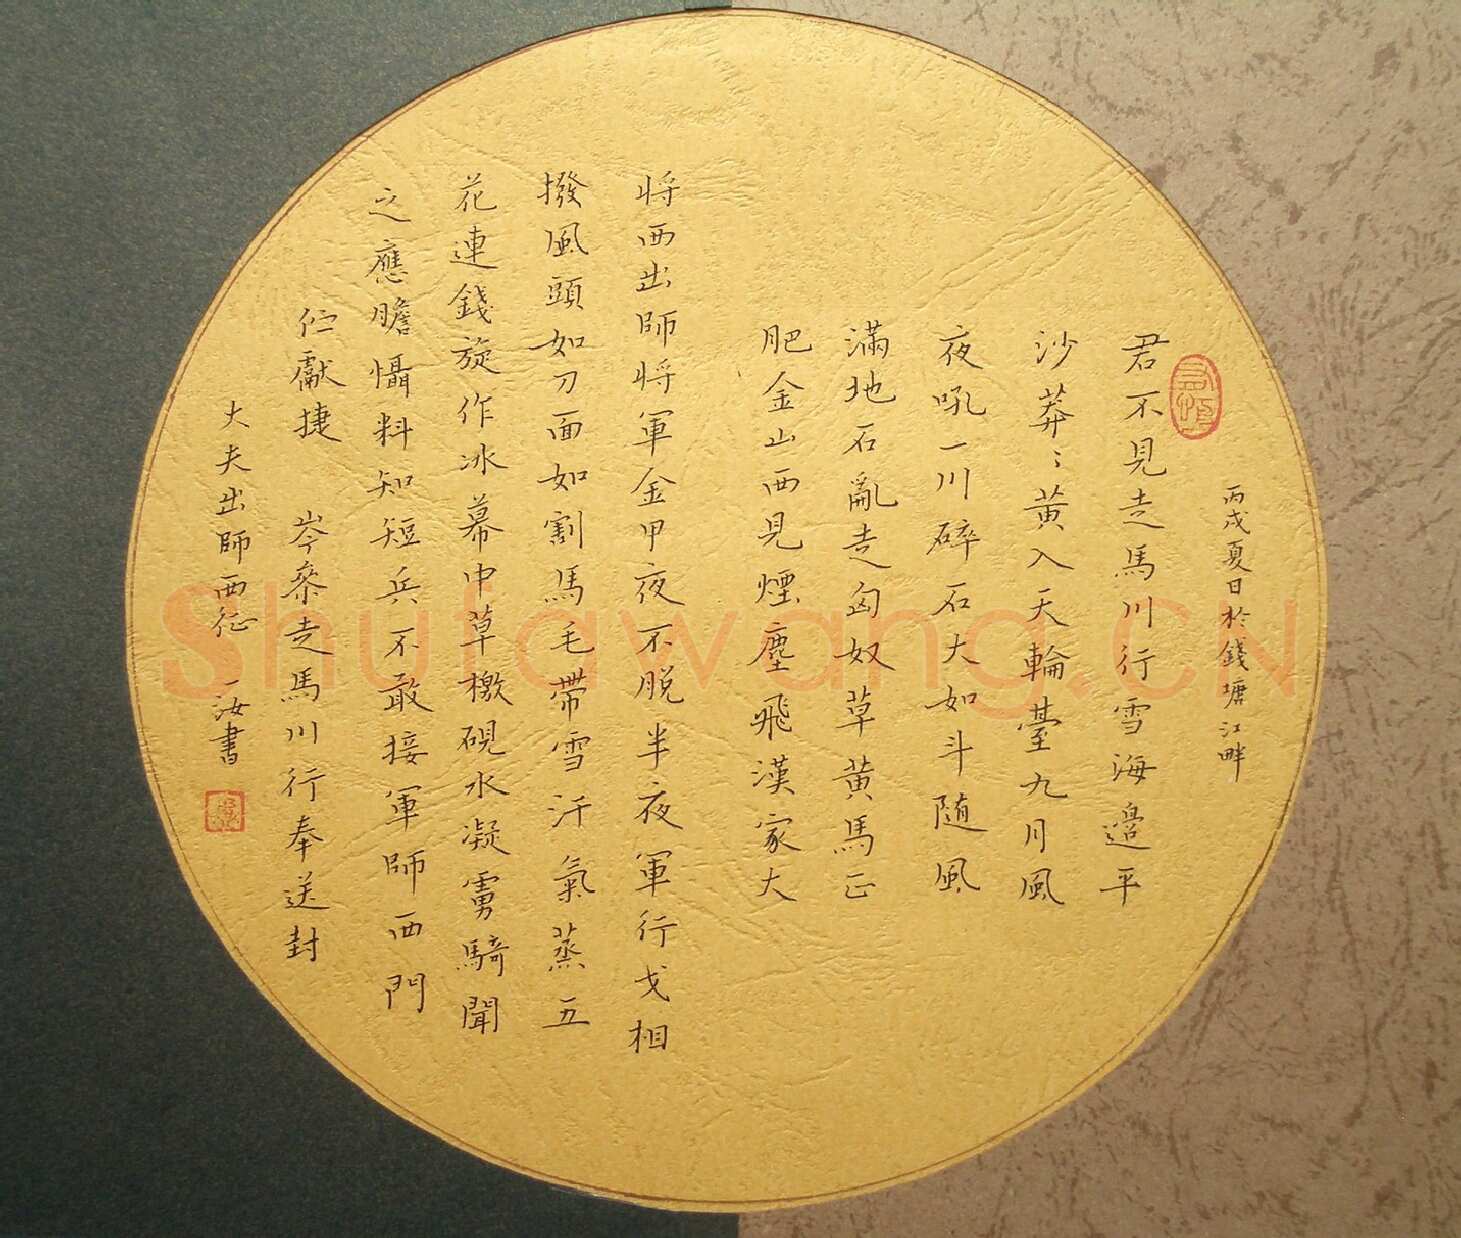 丙戌夏日於錢塘江畔
君不見走馬川行雪海邊平
沙莽〻黃入天輪臺九月風
夜吼一川碎石大如斗随風
滿地石亂走匈奴草黃馬正
肥金山西見煙塵飛漢家大
将西出師将軍金甲夜不脱半夜軍行戈相
撥風頭如刀面如割馬毛帶雪汗氣蒸五
花連錢旋作冰幕中草檄硯水凝虜騎聞
之應膽懾料知短兵不敢接軍師西門
伫獻捷 岑參走馬川行奉送封
大夫出師西征 一汝書
Shufawang.CN